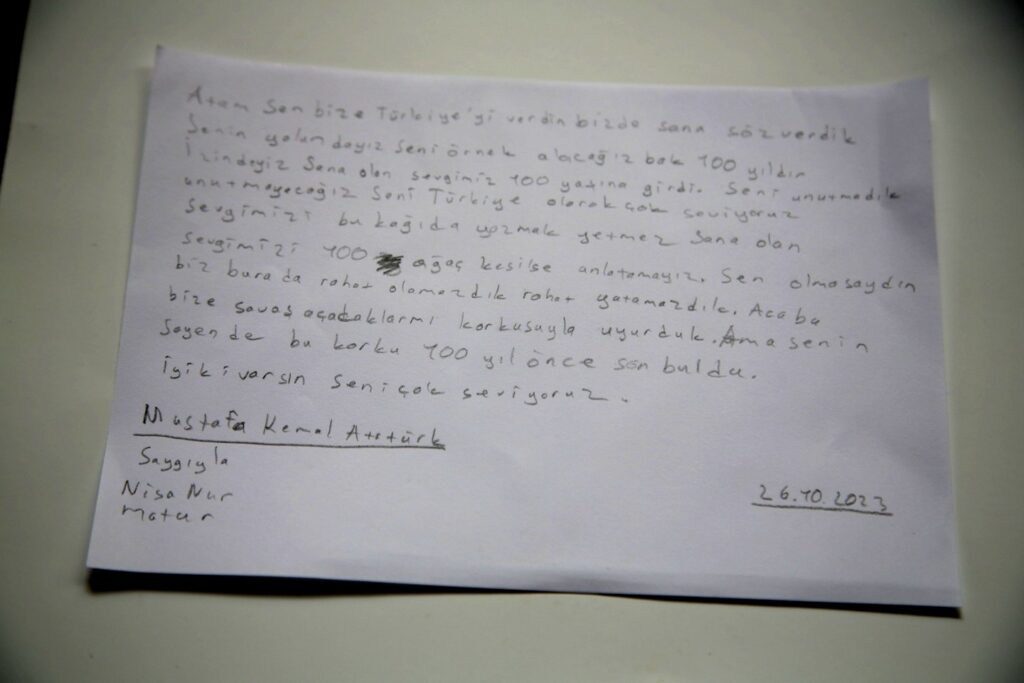 Atam sen bize Türkiye'yi verdin bizde sana söz verdik
Senin yolundayız seni örnek alacağız bak 100 yıldır
İzindeyiz Sana olan sevgimiz 100 yaşına girdi. Seni unutmadık
unutmayacağız Seni Türkiye olarak çok seviyoruz
sevgimizi bu kağıda yazmak yetmez sana olan
sevgimizi 100 ağaç kesilse anlatamayız. Sen olmasaydın
biz burada rahat olamazdık rahat yatamazdık. Acaba
bize savaş açacaklarmı korkusuyla uyurduk. Ama senin
sayende bu korku 100 yıl önce son buldu.
İyiki varsın seni çok seviyoruz.
Mustafa Kemal Atatürk
Saygıyla
Nisa Nur
Matur
26.10.2023